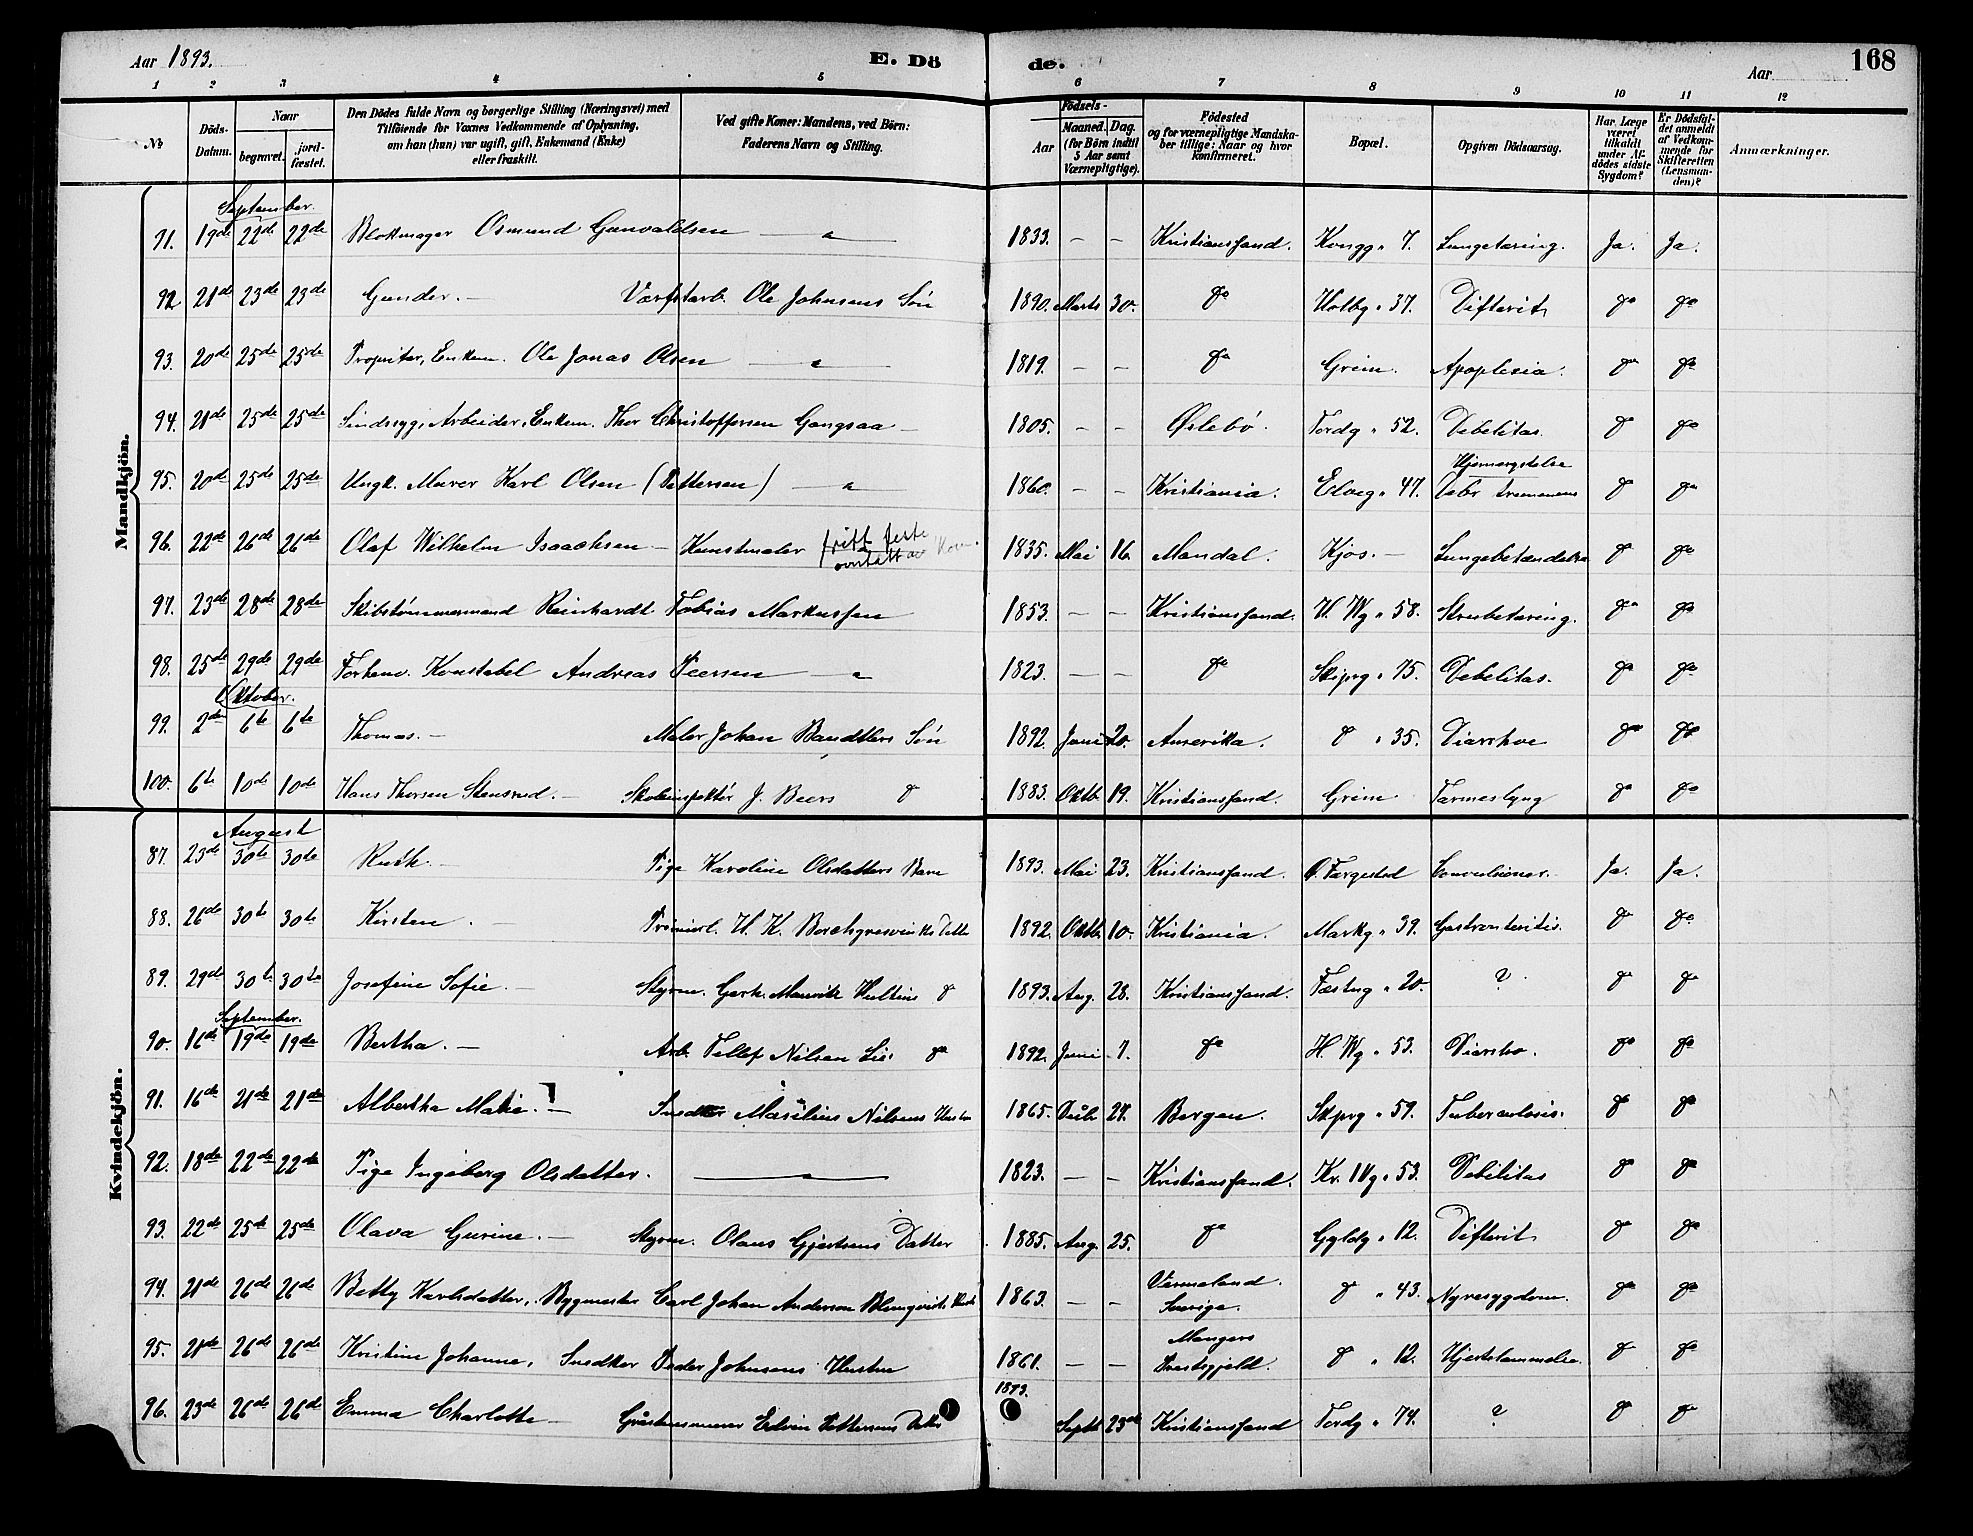 Aar 1893.
E. Dö
de.
Aar
168
1 2 3 4 5 6 7 8 9 10 11 12
№
Döds-Datum.
Naar
begravet.
jordfæstet.
Den Dödes fulde Navn og borgerlige Stilling (Næringsvei) med
Tilföiende for Voxnes Vedkommende af Oplysning,
om han (hun) var ugift, gift, Enkemand (Enke)
eller fraskilt.
Ved gifte Koner: Mandens, ved Börn:
Faderens Navn og Stilling.
Födsels-
Aar
Maaned. Dag.
(for Börn indtil
5 Aar samt
Værnepligtige).
Födested
og for værnepligtige Mandska-
ber tillige: Naar og hvor
konfirmeret.
Bopæl.
Opgiven Dödsaarsag.
Har Læge
været
tilkaldt
under Af-
dödes sidste
Sygdom?
Er Dödsfal-
det anmeldt
af Vedkom-
mende for
Skifteretten
(Lensman-
den)?
Anmærkninger.
Mandkjön.
September.
91. 19de 22de 22de Blokmager Osmund Gunvaldsen — " — 1833. — — Kristianssand. Kongg " 7. Lungetæring. Ja. Ja.
92 21de 23de 23de Gunder. — Værftarb. Ole Johnsens Sön 1890. Marts 30. do Holbg " 37. Difterit do do
93. 20de 25de 25de Propritær, Enkem. Ole Jonas Olsen — " — 1819. — — do Grim. Apoplexia. do do
94. 21de 25de 25de Sindssyg, Arbeider, Enkem. Thor Christoffersen Gangsaa — 1805. — — Øslebö. Tordg " 52. Debelitas. do do
95. 20de 25de 25de Ungk. Murer Karl Olsen (Pettersen) — " — 1860. — — Kristiania. Elveg " 47. Hjernerystelse do do
96. 22de 26de 26de Olaf Wilhelm Isaachsen — Kunstmaler 1835. Mai 16. Mandal. Kjos. — Lungebetændelse do do
97. 23de 28de 28de Skibstømmermand Reinhardt Tobias Markussen 1853. — — Kristianssand. V. Wg " 58. Strubetæring. do do
98. 25de 29de 29de Forhenv. Konstabel Andreas Peersen — " 1823. — — do Skiprg " 75. Debelitas. do do
Oktober.
99. 2den 6te 6te Thomas. — Maler Johan Bandtlers Sön 1892. Juni 20. Amerika. do " 35. Diarrhoe do do
100. 6te 10de 10de Hans Thorsen Stensrud. — Skoleinspektör J. Beers do 1883. Oktb. 19. Kristianssand. Grim Tarmeslyng do do
Kvindekjön.
August
87. 23de 30te 30te Ruth. — Pige Karoline Olsdatters Barn 1893. Mai 23. Kristianssand. O. Færgested Convulsioner. Ja. Ja.
88. 26de 30te 30te Kirsten. — Prömierl. H. K. Borchgrevinks Datter 1892. Oktb. 10. Kristiania. Markg " 39. Gastronteritis. do do
89. 29de 30te 30te Josefine Sofie. — Styrm. Gerh. Mauritz Hultins do 1893. Aug. 28. Kristianssand. Fæstng " 20. ? do do
September.
90. 16de 19de 19de Bertha. — Arb. Tellef Nilsen Lie do 1892. Juni 7. do H. Wg " 53. Diarrho. do do
91. 16de 21de 21de Albertha Marie. — Snedker Masilius Nilsens Hustru 1865. Decbr 27. Bergen. Skprg " 59. Tuberculosis. do do
92. 18de 22de 22de Pige Ingeborg Olsdatter. — " — 1823. — — Kristianssand. Kr. IVg " 53. Debilitas do do
93. 22de 25de 25de Olava Gurine. — Styrm. Olaus Gjertsens Datter 1885. Aug. 25. do Gyldg " 12. Difterit do do
94. 21de 26de 26de Betty Karlsdatter, Bygmester Carl Johan Anderson Blomqvists Hustr 1863. — — Vermeland. Sverige. do " 43. Nyresygdom. do do
95. 21de 26de 26de Kristine Johanne, Snedker Peder Johnsens Hustru 1861. — — Mangers Prestegjeld. do " 12. Hjertelammelse. do do
96. 23de 26de 26de Emma Charlotte — Edvin Pettersens Datter 1893. Septb 23de Kristianssand Tordg " 74. ? do do